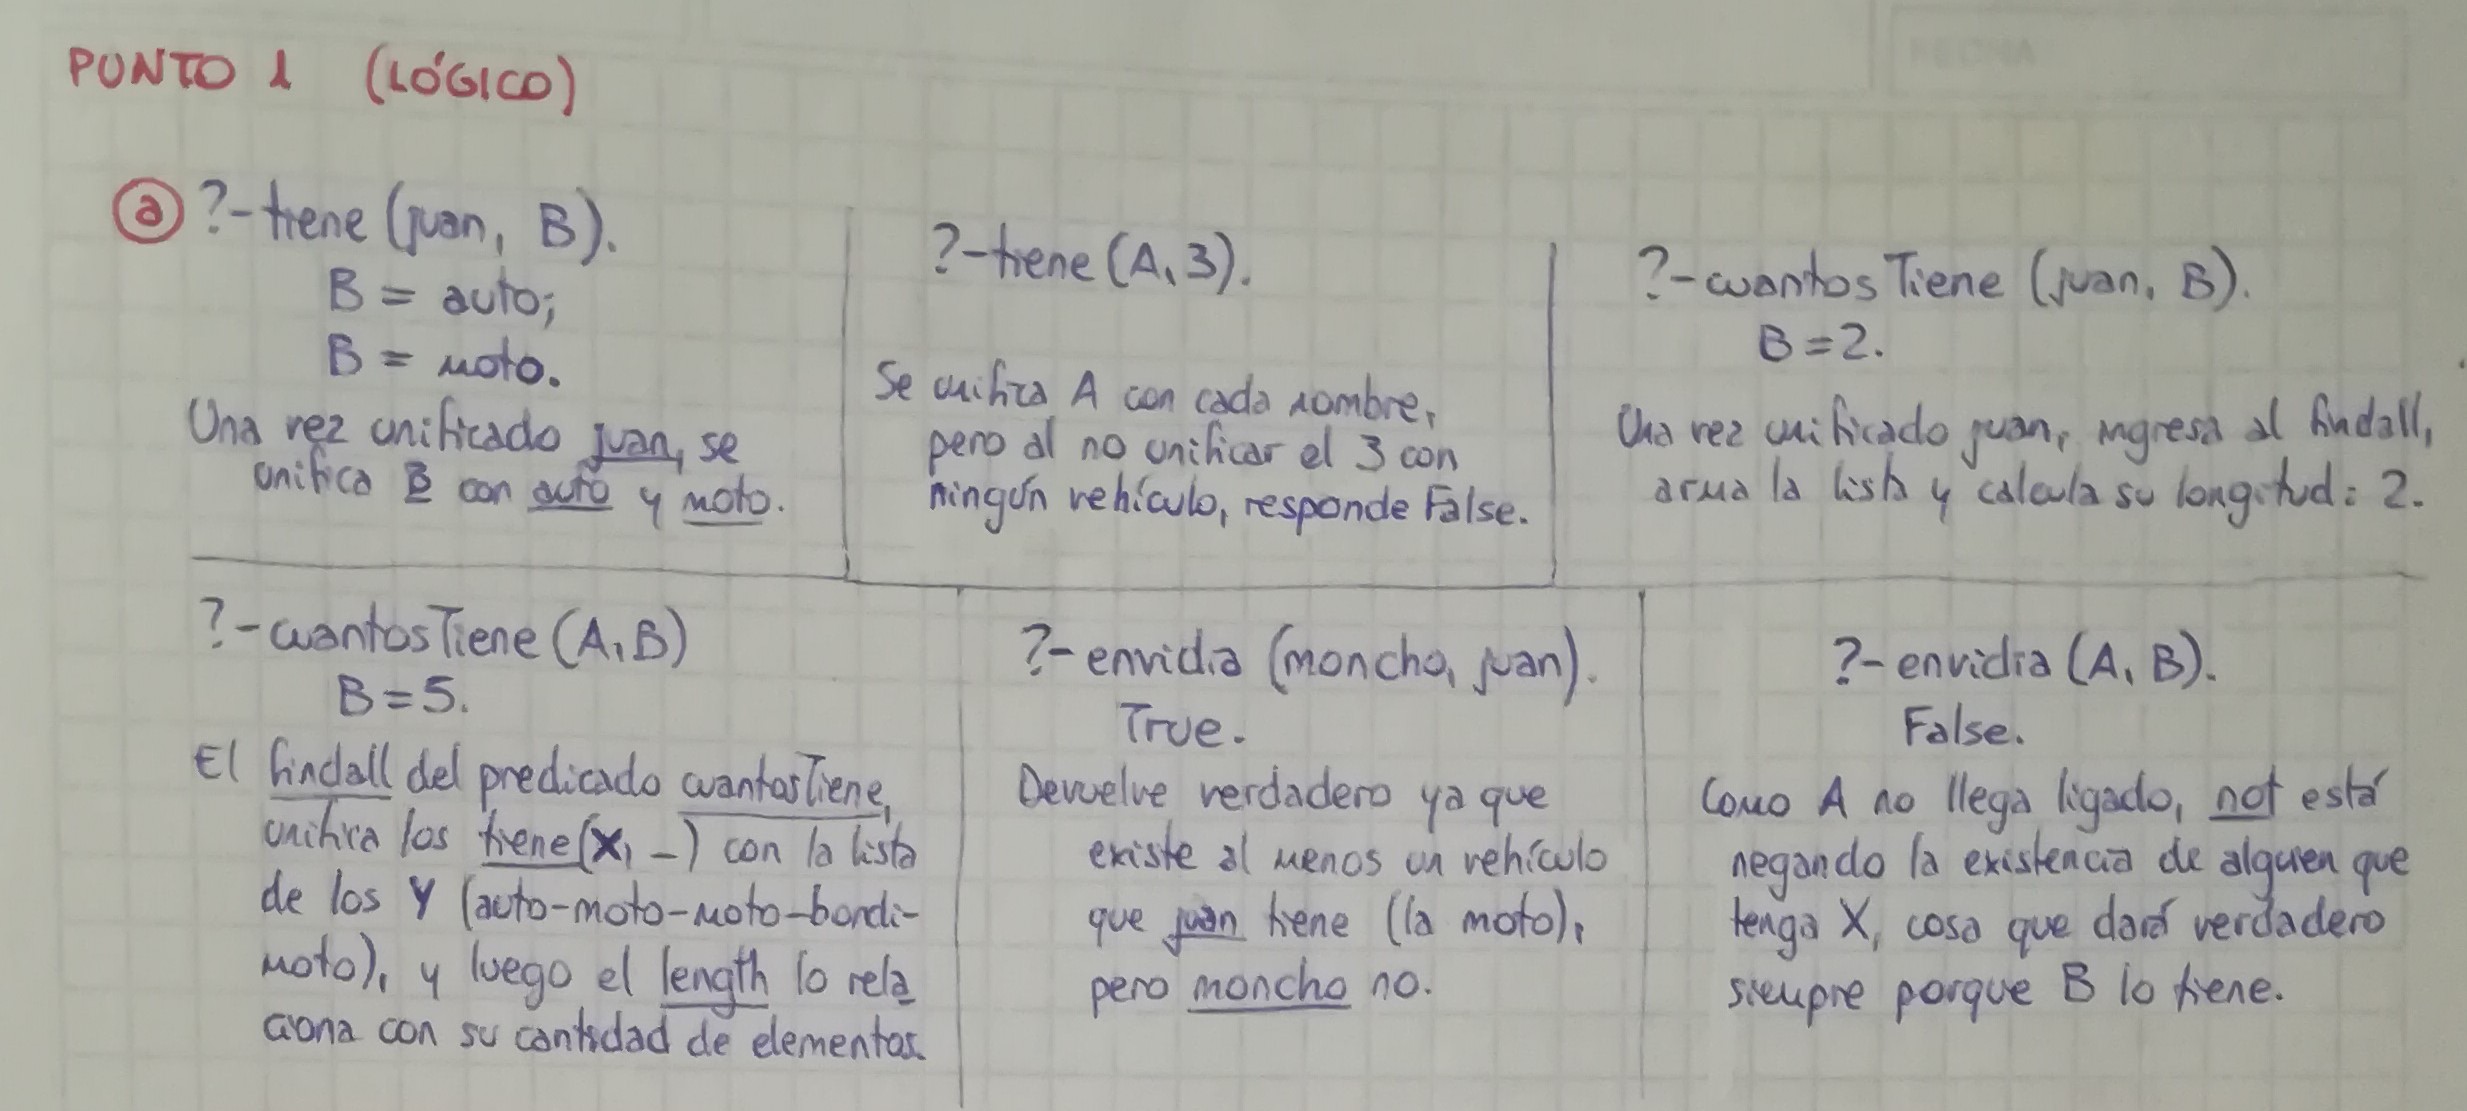 PUNTO 1 (LÓGICO)
a ?-tiene (juan, B).
B = auto;
B = moto.
Una vez unificado juan, se
unifica B con auto y moto.
?-tiene (A, 3).
Se unifica A con cada nombre,
pero al no unificar el 3 con
ningún vehículo, responde False.
?-cuantosTiene (juan, B).
B=2.
Una vez unificado juan, ingresa al findall,
arma la lista y calcula su longitud: 2.
?-cuantosTiene (A, B)
B=5.
El findall del predicado cuantosTiene,
unifica los tiene(X, _) con la lista
de los Y (auto-moto-moto-bondi-
moto), y luego el length lo rela
ciona con su cantidad de elementos.
?-envidia (moncho, juan).
True.
Devuelve verdadero ya que
existe al menos un vehículo
que juan tiene (la moto),
pero moncho no.
?-envidia (A, B).
False.
Como A no llega ligado, not está
negando la existencia de alguien que
tenga X, cosa que dará verdadero
siempre porque B lo tiene.